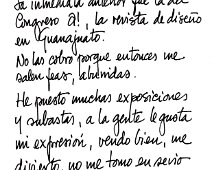 la inmediata anterior que la del
Congreso a!, la revista de diseño
en Guanajuato.
No las cobro porque entonces me
salen feas, aburridas.
He puesto muchas exposiciones
y subastas, a la gente le gusta
mi expresión, vendo bien, me
divierto, no me tomo en serio